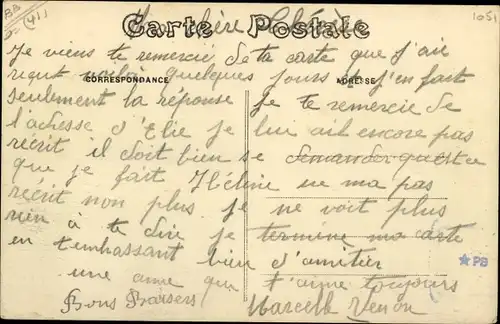 Carte Postale
CORRESPONDANCE
ADRESSE
1051
Je viens te remercie de ta carte que j'air
reçut quelques jours j'en fait
seulement la réponse je te remercie de
l'adresse d'Elie je lui ait encore pas
récrit il doit bien se demander
que je fait Hélène ne ma pas
récrit non plus je ne voit plus
rien à te dire je termine ma carte
en t'embrassant bien d'amitier
une amie qui t'aime toujours
Bons Baisers Marcelle
PB